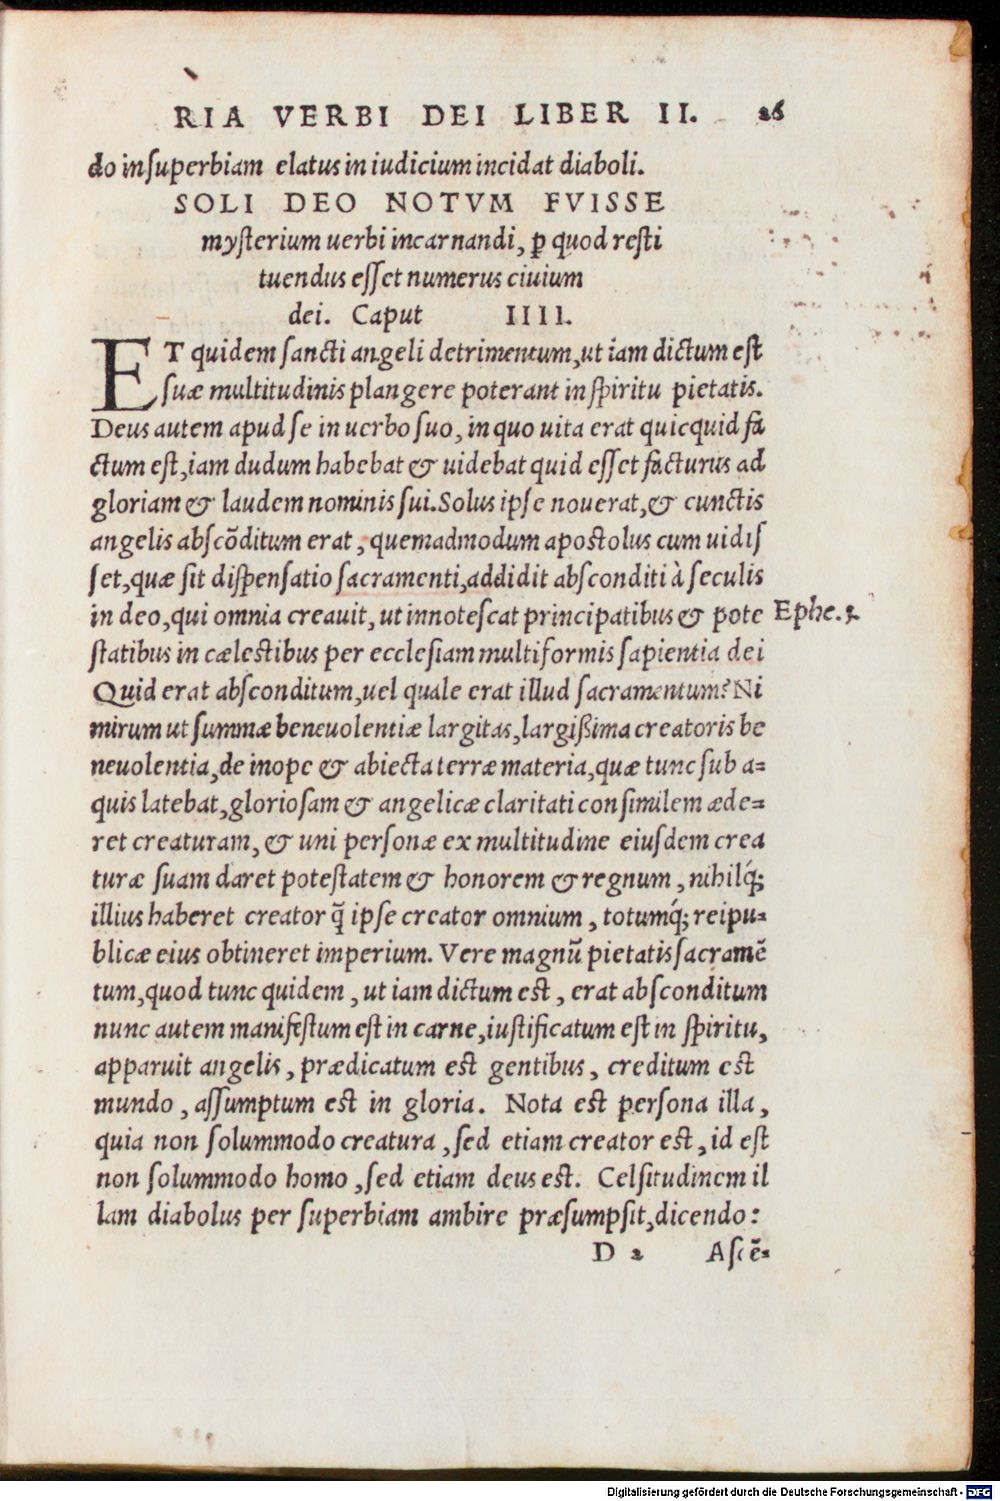 RIA VERBI DEI LIBER II. 26
do in superbiam elatus in iudicium incidat diaboli.
SOLI DEO NOTVM FVISSE
mysterium uerbi incarnandi, ꝑ quod resti
tuendus esset numerus ciuium
dei. Caput IIII.
ET quidem sancti angeli detrimentum, ut iam dictum est
suæ multitudinis plangere poterant in spiritu pietatis.
Deus autem apud se in uerbo suo, in quo uita erat quicquid fa
ctum est, iam dudum habebat & uidebat quid esset facturus ad
gloriam & laudem nominis sui. Solus ipse nouerat, & cunctis
angelis abscõditum erat, quemadmodum apostolus cum uidis
set, quæ sit dispensatio sacramenti, addidit absconditi à seculis
in deo, qui omnia creauit, ut innotescat principatibus & pote Ephe. 3.
statibus in cælestibus per ecclesiam multiformis sapientia dei
Quid erat absconditum, uel quale erat illud sacramentum? Ni
mirum ut summæ beneuolentiæ largitas, largißima creatoris be
neuolentia, de inope & abiecta terræ materia, quæ tunc sub a=
quis latebat, gloriosam & angelicæ claritati consimilem æde=
ret creaturam, & uni personæ ex multitudine eiusdem crea
turæ suam daret potestatem & honorem & regnum, nihilq́;
illius haberet creator q̃ ipse creator omnium, totumq́; reipu=
blicæ eius obtineret imperium. Vere magnũ pietatis sacramẽ
tum, quod tunc quidem, ut iam dictum est, erat absconditum
nunc autem manifestum est in carne, iustificatum est in spiritu,
apparuit angelis, prædicatum est gentibus, creditum est
mundo, assumptum est in gloria. Nota est persona illa,
quia non solummodo creatura, sed etiam creator est, id est
non solummodo homo, sed etiam deus est. Celsitudinem il
lam diabolus per superbiam ambire præsumpsit, dicendo:
D 2 Ascẽ=
Digitalisierung gefördert durch die Deutsche Forschungsgemeinschaft - DFG